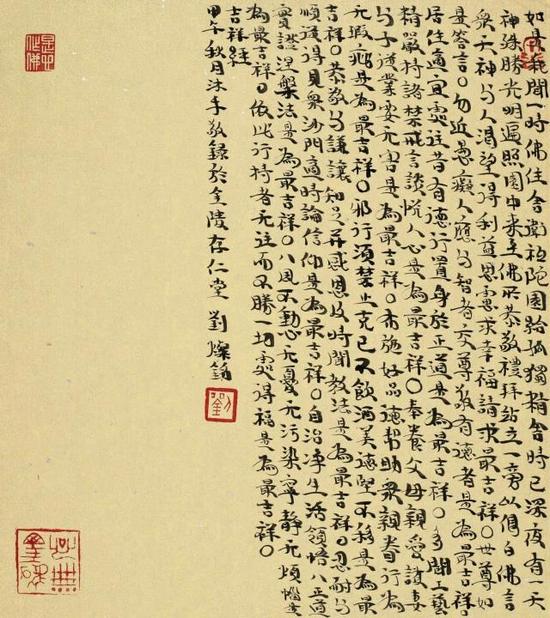 如是我聞一時佛住舍衛祇陀園給孤獨精舍時已深夜有一天
神殊勝光明遍照園中來至佛所恭敬禮拜站立一旁以偈白佛言
衆天神與人渴望得利益思慮求幸福請求最吉祥〇世尊如
是答言〇勿近愚癡人應與智者交尊敬有德者是為最吉祥〇
居住適宜處往昔有德行置身於正道是為最吉祥〇多聞工藝
精嚴持諸禁戒言談悅人心是為最吉祥〇奉養父母親愛護妻
與子從業要无害是為最吉祥〇布施好品德幫助衆親眷行為
无瑕疵是為最吉祥〇邪行須禁止克己不飲酒美德堅不移是為最
吉祥〇恭敬與謙讓知足并感恩及時聞教法是為最吉祥〇忍耐與
順從得見衆沙門適時論信仰是為最吉祥〇自治淨生活領悟八正道
實證涅槃法是為最吉祥〇八風不動心无憂无污染寧靜无煩惱是
為最吉祥〇依此行持者无往而不勝一切處得福是為最吉祥〇
吉祥經
甲午秋月沐手敬錄於金陵存仁堂 劉燦銘
劉